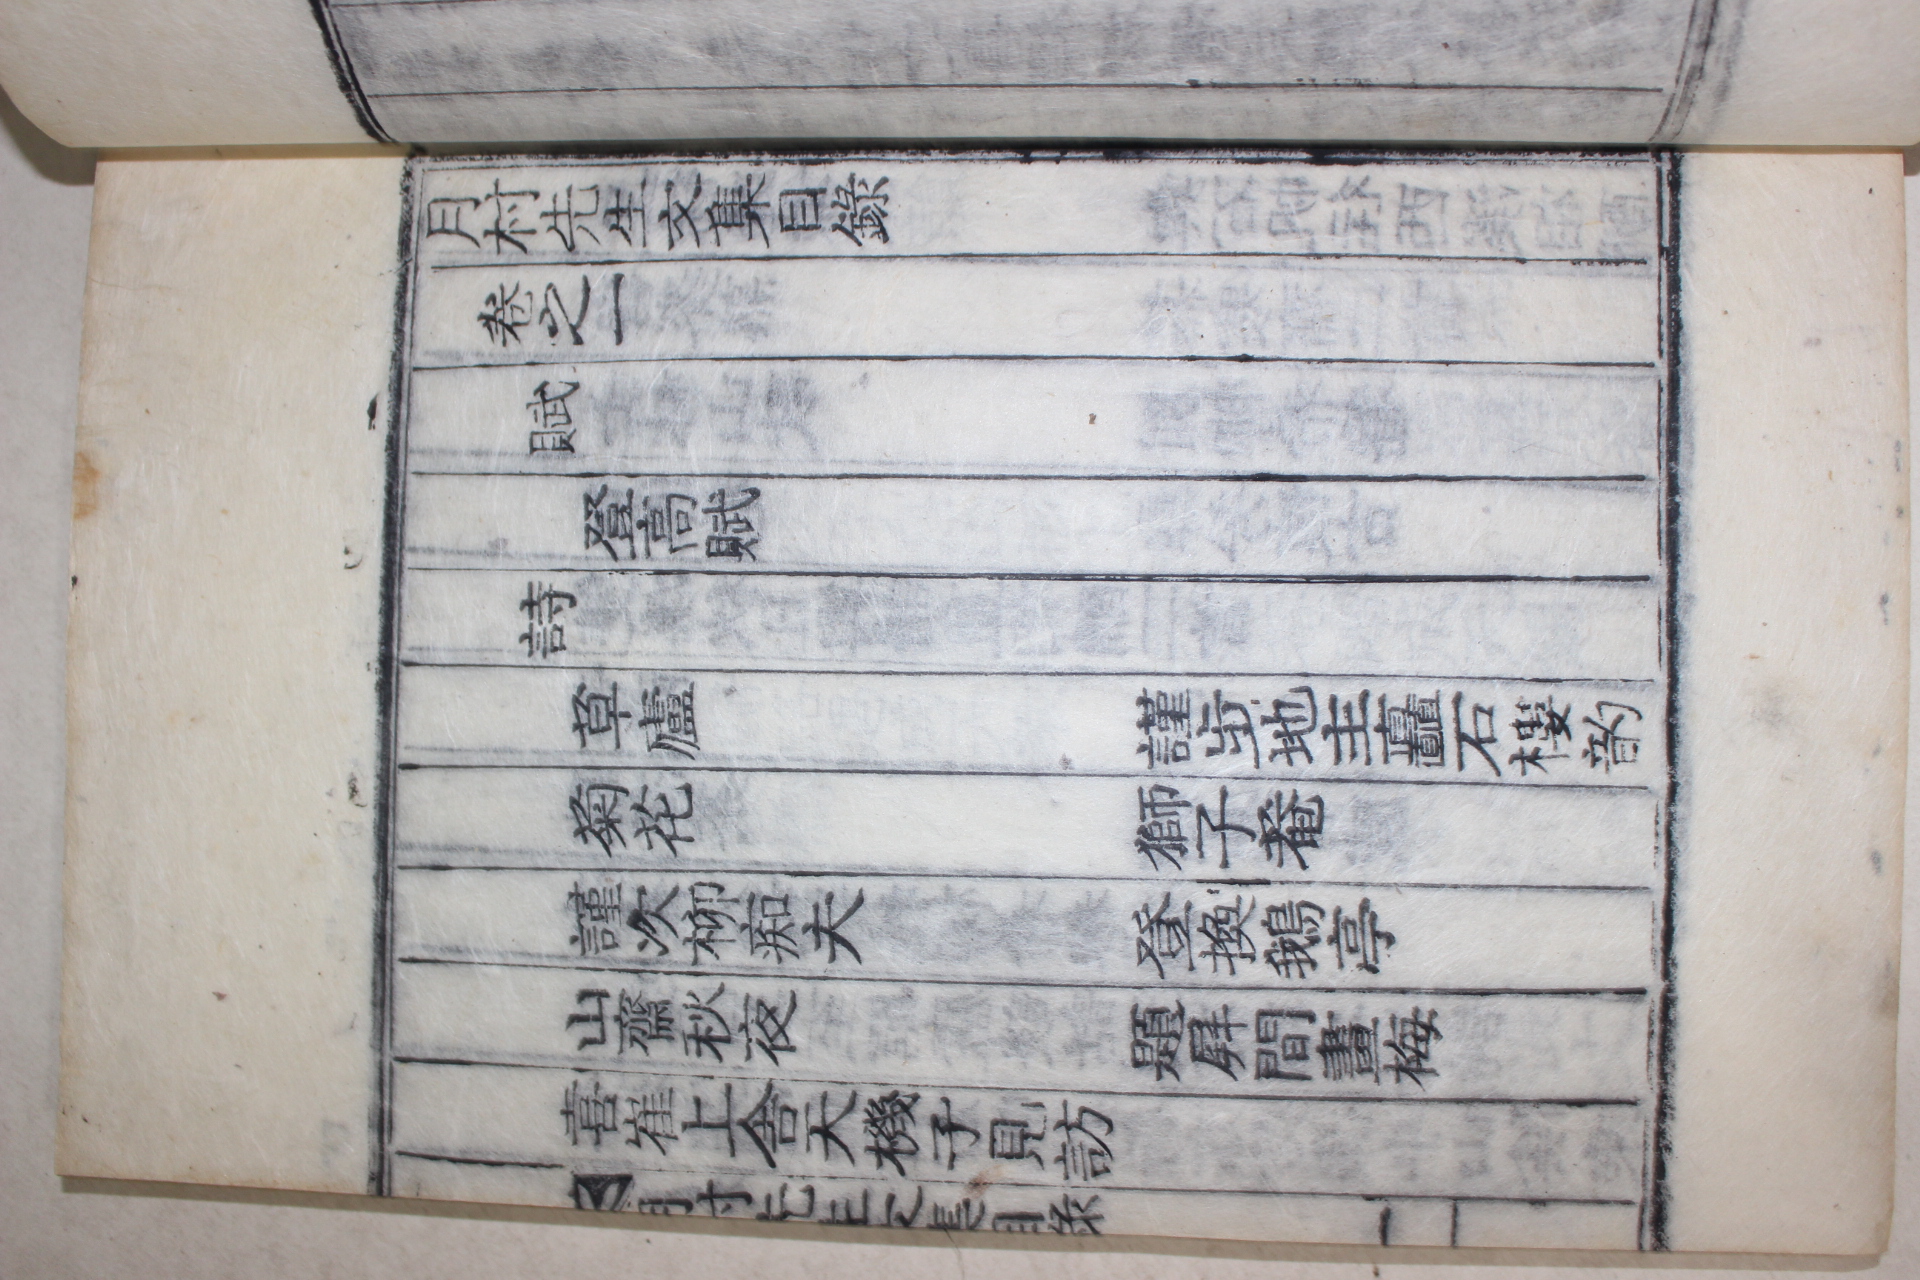 月村先生文集目錄
卷之一
賦
登高賦
詩
草廬 謹步地主矗石樓韵
菊花 獅子菴
謹次柳痴夫 登換鵝亭
山齋秋夜 題屛間畫梅
喜崔上舍天機子見訪
月村先生文集目錄 一